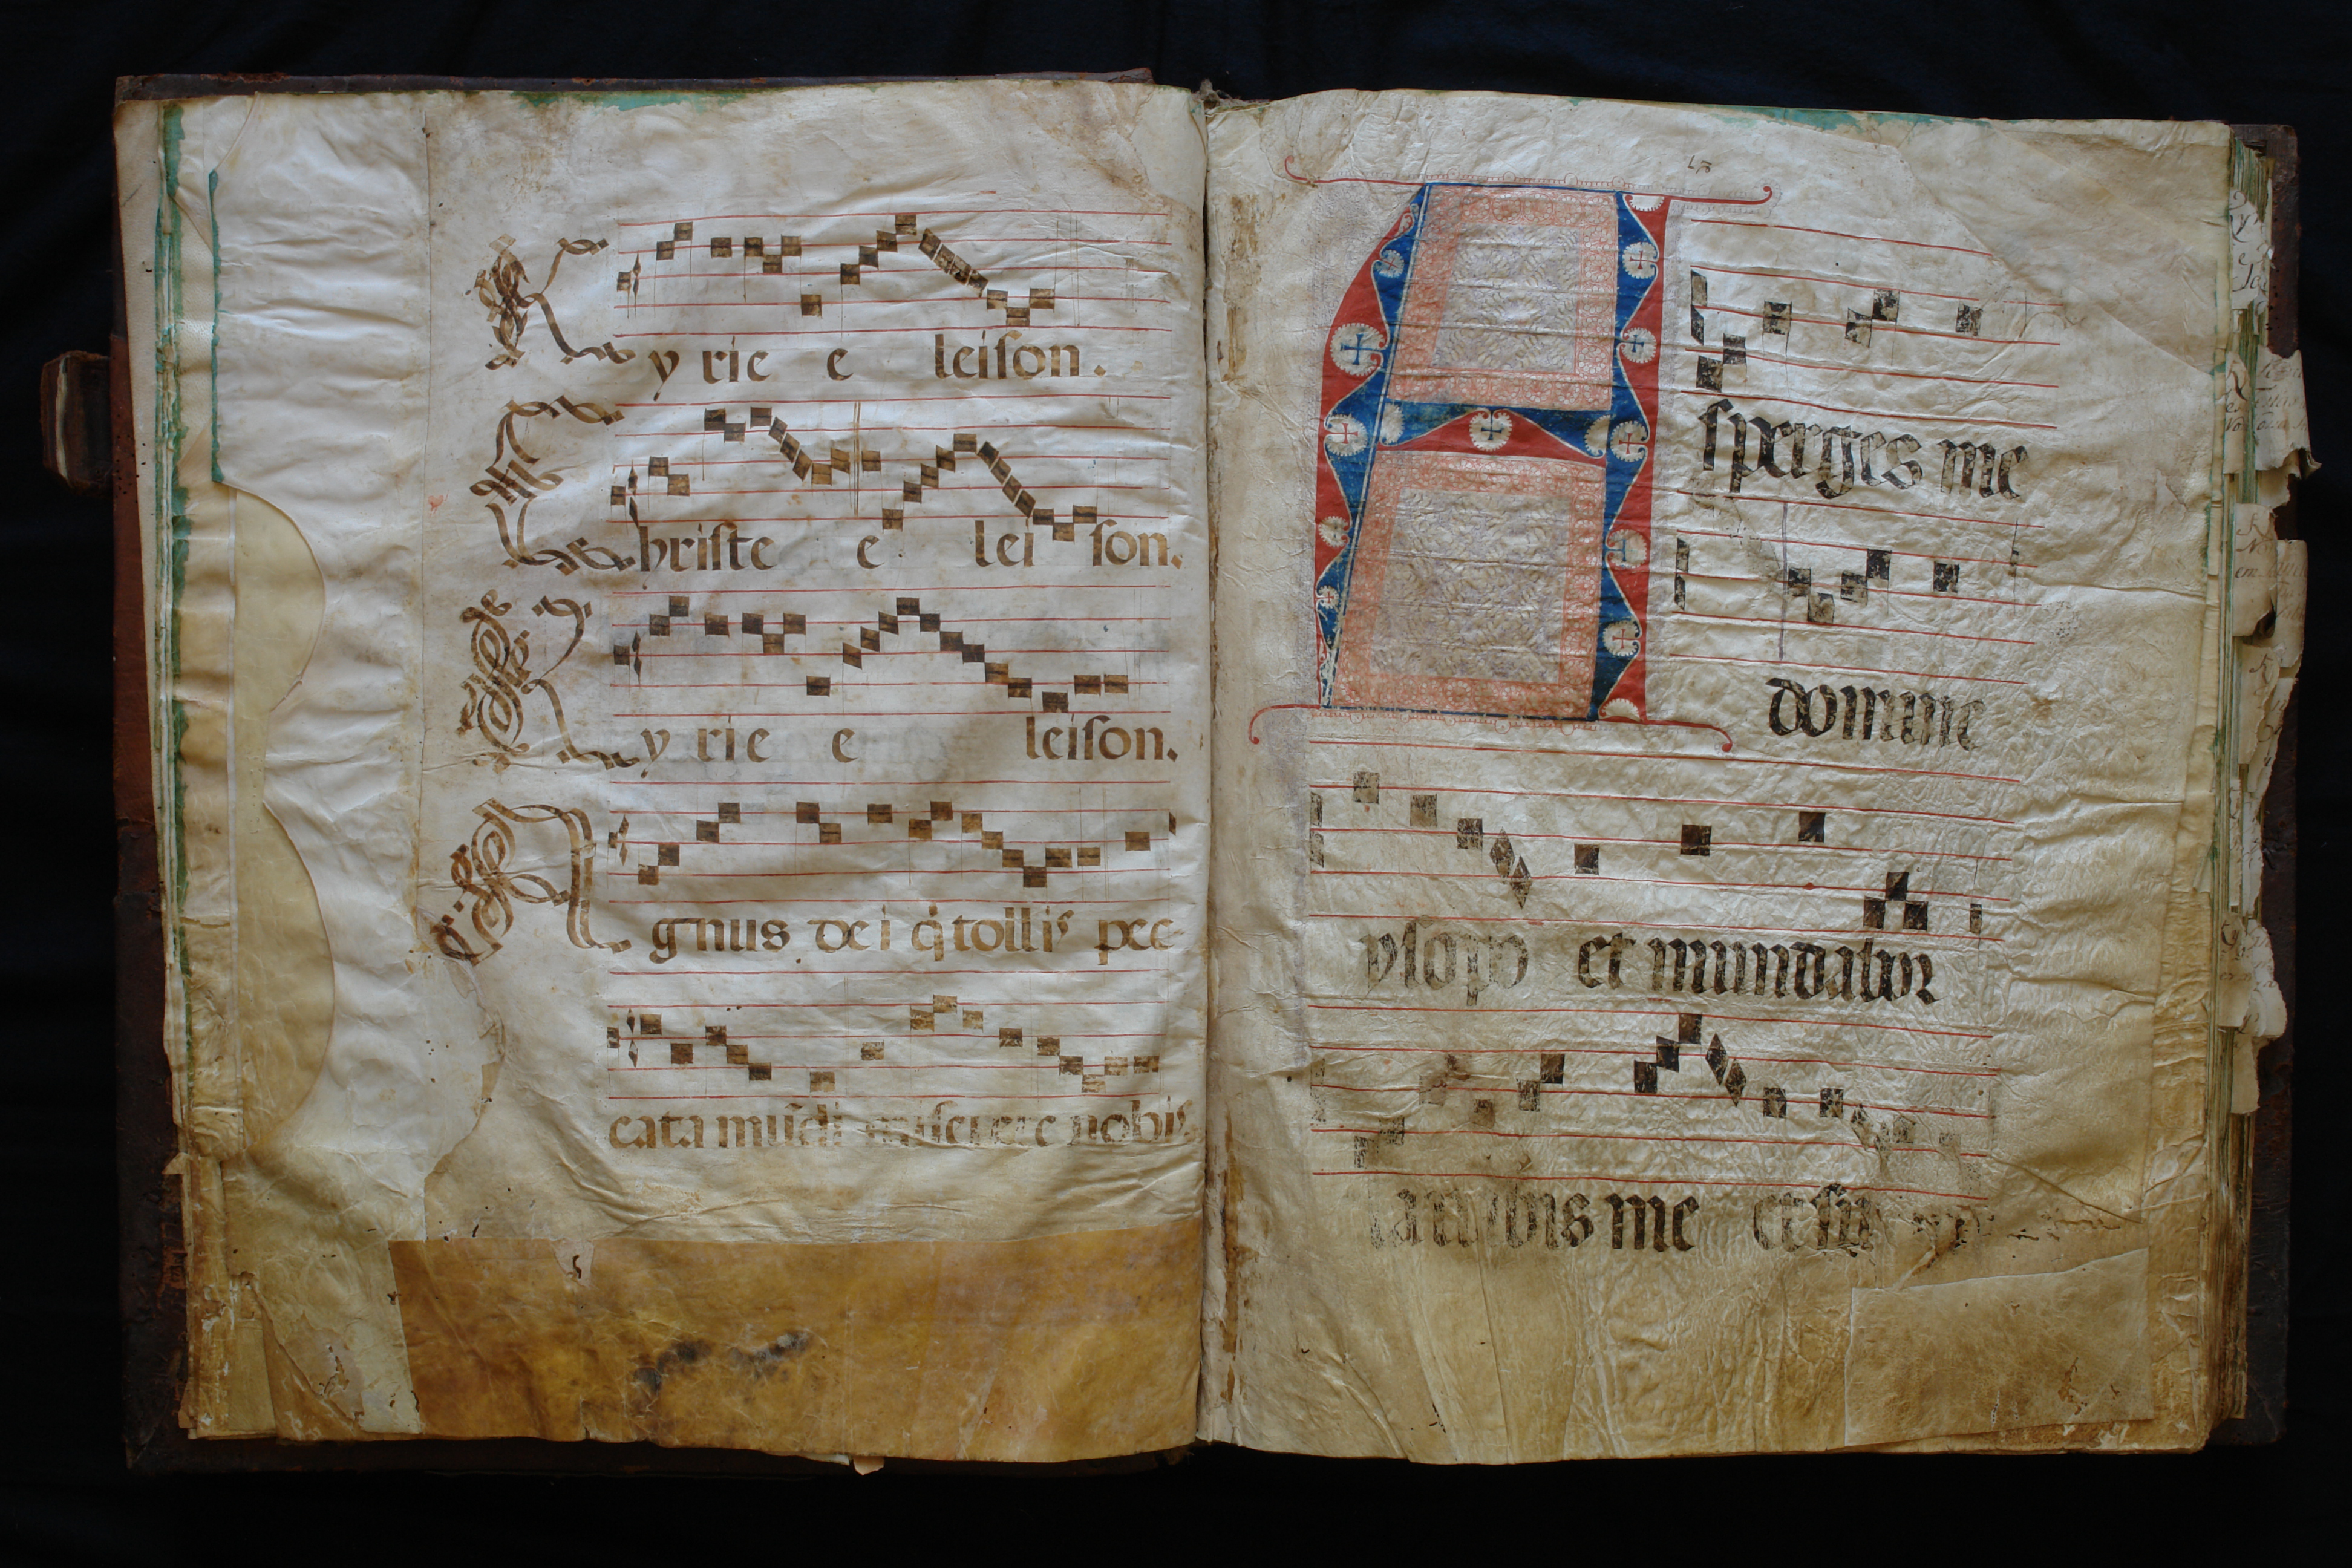 Kyrie e leiſon.
Chriſte e lei ſon.
Kyrie e leiſon.
Agnus dei q̇ tollis pec
cata mūdi miſerere nobis.
Aſperges me
domine
yſopo et mundabor
lavabis me et ſup